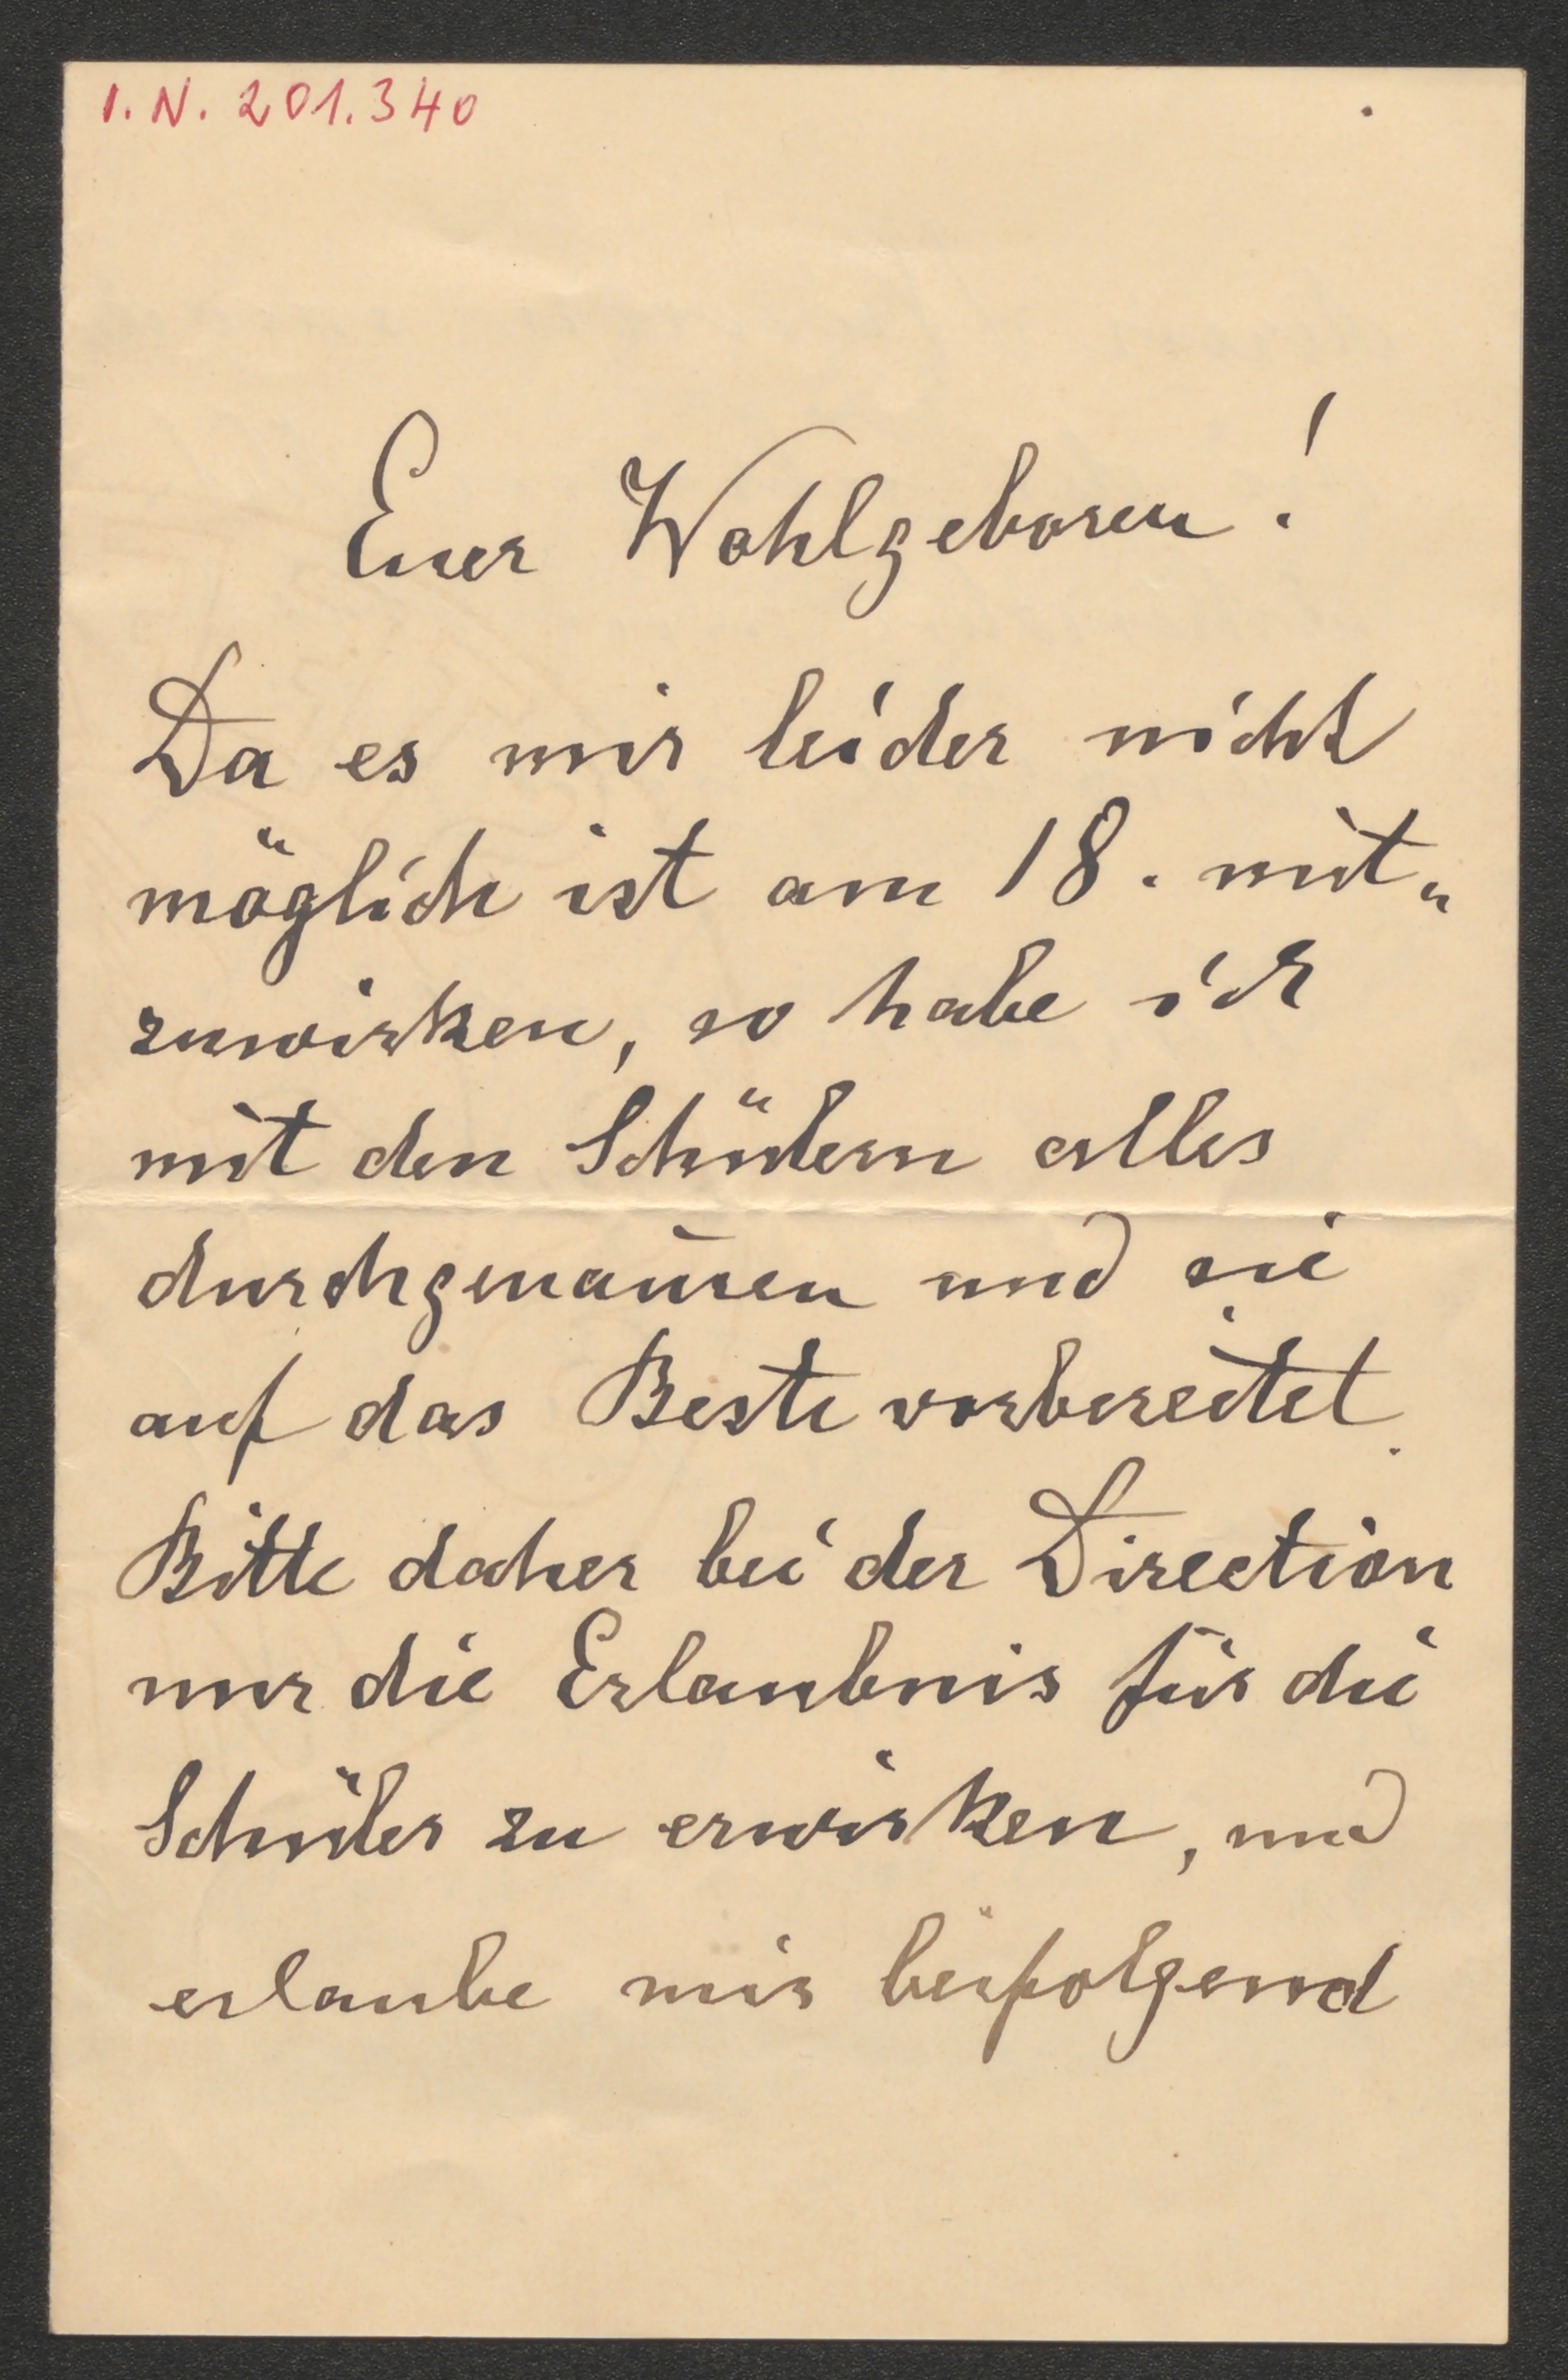 I. N. 201.340
Euer Wohlgeboren!
Da es mir leider nicht
möglich ist am 18. mit„
zuwirken, so habe ich
mit den Schülern alles
und sie
auf das Beste vorbereitet.
Bitte daher bei der Direction
nur die Erlaubnis für die
Schüler zu erwirken, und
erlaube mir beifolgend